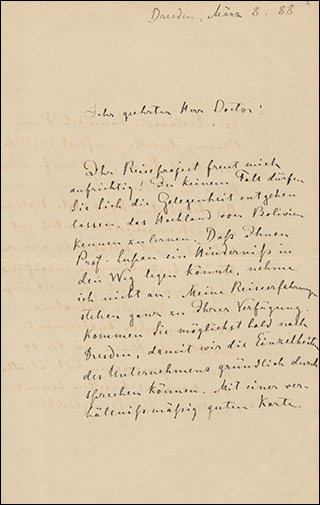 Dresden, März 8. 88
Sehr geehrter Herr Doctor!
Ihr Reiseproject freut mich
aufrichtig! In keinem Fall dürfen
Sie sich die Gelegenheit entgehen
lassen, das Hochland von Bolivien
kennen zu lernen. Daß Ihnen
Prof. ein Hinderniß in
den Weg legen könnte, nehme
ich nicht an. Meine Reiseerfahrungen
stehen ganz zu Ihrer Verfügung.
Kommen Sie möglichst bald nach
Dresden, damit wir die Einzelheiten
des Unternehmens gründlich durch
sprechen können. Mit einer ver-
hältnißmäßig guten Karte